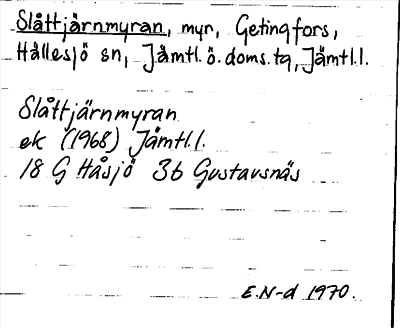 Slåttjärnmyran, myr, Getingfors,
Hällesjö sn, Jämtl. ö. doms. tg, Jämtl. l.
Slåttjärnmyran
ek (1968) Jämtl. l.
18 G Håsjö 3b Gustavsnäs
E.N-d 1970.